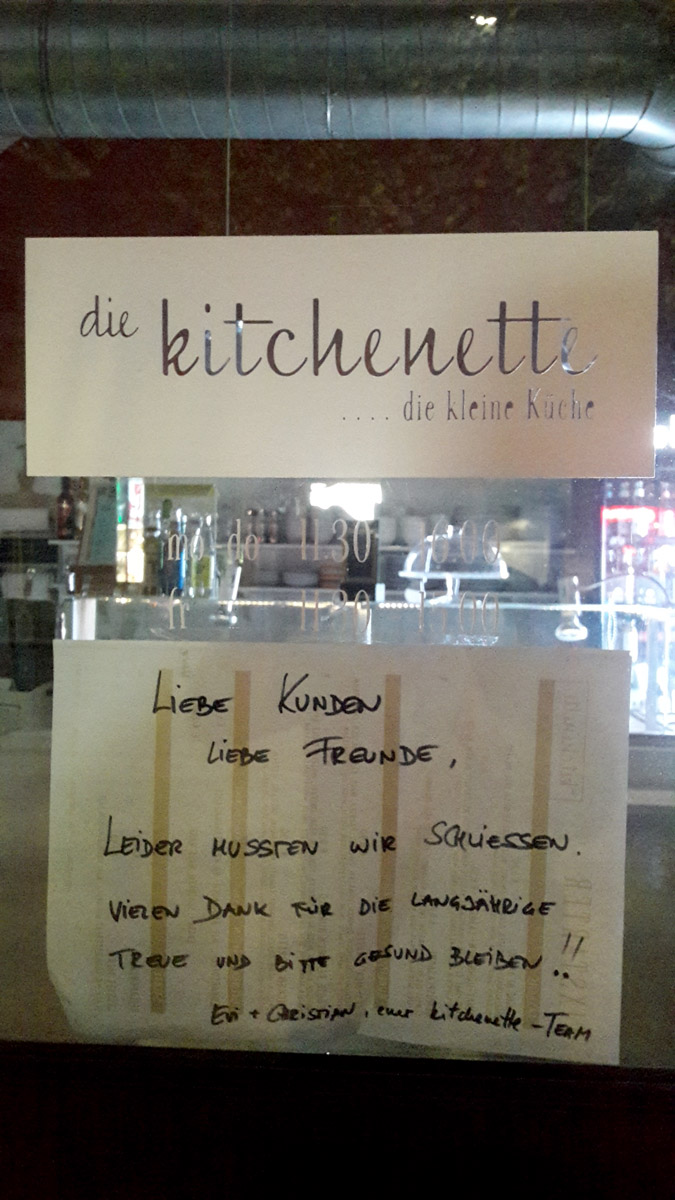 die kitchenette
.... die kleine Küche
mo do 11.30 16.00
fr 11.30
LIEBE KUNDEN
LIEBE FREUNDE,
LEIDER MUSSTEN WIR SCHLIESSEN.
VIELEN DANK FÜR DIE LANGJÄHRIGE
TREUE UND BITTE GESUND BLEIBEN!!
EVI + CHRISTIAN, euer kitchenette-TEAM